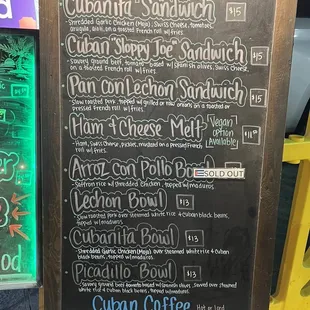 Cubanita Sandwich $15
Shredded Garlic Chicken (Mojo), Swiss Cheese, tomatoes,
arugula, aioli, on a toasted French roll w/ fries.
Cuban "Sloppy Joe" Sandwich $15
Savory ground beef, tomato based w/ Spanish olives, Swiss Cheese,
on a toasted French roll w/ fries.
Pan con Lechon Sandwich $15
Slow roasted pork, topped w/ grilled or raw onions on a toasted or
pressed French roll w/ fries.
Ham & Cheese Melt
Vegan
option
Available
Ham, Swiss Cheese, pickles, mustard on a pressed French
roll w/ fries.
Arroz con Pollo Bowl
SOLD OUT
Saffron rice w/ shredded chicken, topped w/ maduros.
Lechon Bowl $13
Slow roasted pork over steamed white rice & Cuban black beans,
topped w/ maduros.
Cubanita Bowl $13
Shredded Garlic Chicken (Mojo) over steamed white rice & Cuban
black beans, topped w/ maduros.
Picadillo Bowl $13
Savory ground beef tomato based w/ Spanish olives, served over steamed
white rice & Cuban black beans, topped w/ maduros.
Cuban Coffee Hot or Iced